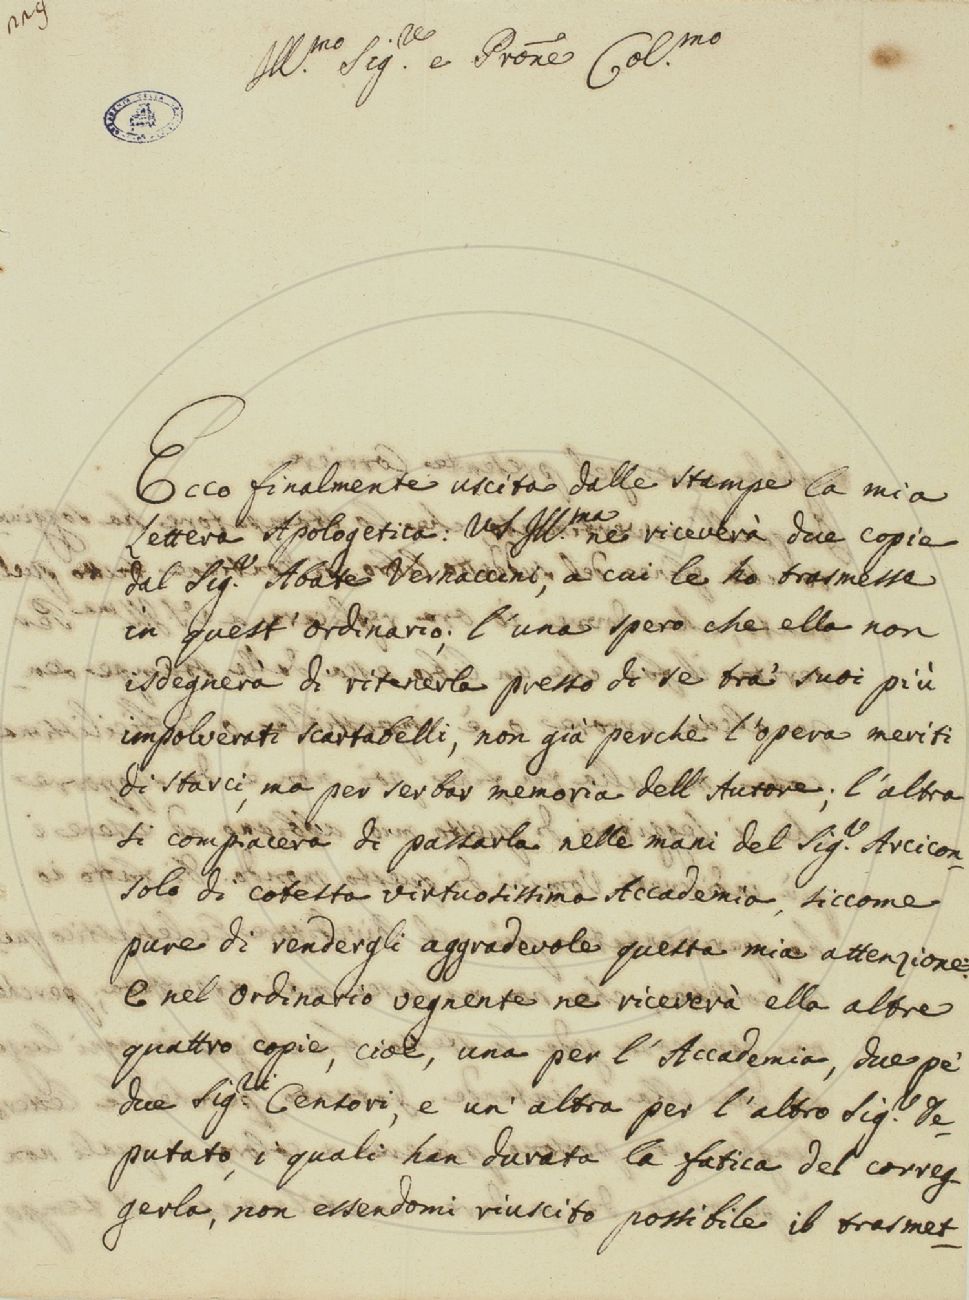 229
Ill.mo Sig.re e Prõne Col.mo
Ecco finalmente uscita dalle stampe la mia
Lettera Apologetica: V.S. Ill.ma ne riceverà due copie
dal Sig.r Abate Vernaccini, a cui le ho trasmesse
in quest'ordinario; l'una spero che ella non
isdegnerà di ritenerla presso di se tra' suoi più
impolverati scartabelli, non già perchè l'opera meriti
di starci, ma per serbar memoria dell'Autore; l'altra
si compiacerà di passarla nelle mani del Sig.r Arcicon-
solo di cotesta virtuosissima Accademia, siccome
pure di rendergli aggradevole questa mia attenzione.
E nel ordinario vegnente ne riceverà ella altre
quattro copie, cioè, una per l'Accademia, due pe'
due Sig.ri Censori, e un'altra per l'altro Sig.r De-
putato, i quali han durata la fatica del correg-
gerla, non essendomi riuscito possibile il trasmet-